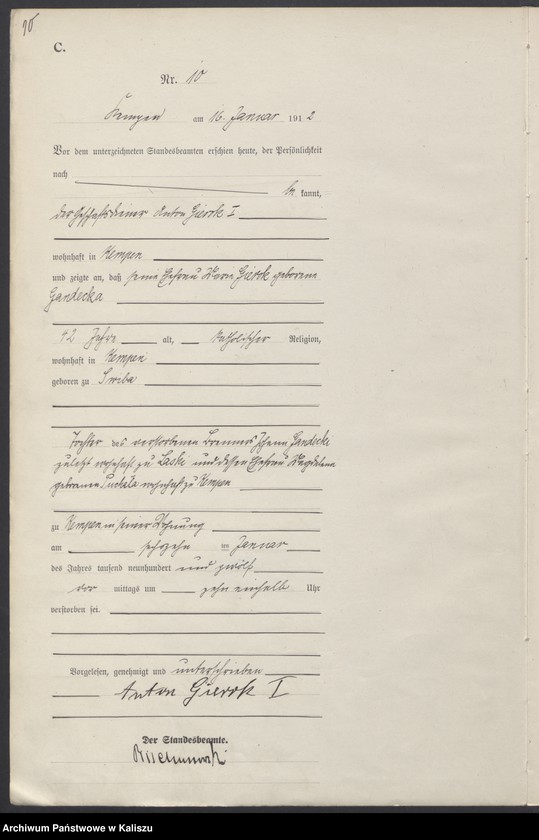 95
C.
Nr. 10
Kempen am 16. Januar 1912
Vor dem unterzeichneten Standesbeamten erschien heute, der Persönlichkeit
nach
be kannt,
der Geschäftsdiener Anton Gierok I
wohnhaft in Kempen
und zeigte an, daß seine Ehefrau Marie Gierok geborene
Gandecka
42 Jahre alt, katholischer Religion,
wohnhaft in Kempen
geboren zu Swiba
Tochter des verstorbenen Brenners Johann Gandecki
zuletzt wohnhaft zu Laski und dessen Ehefrau Magdalena
geborenen wohnhaft zu Kempen
zu Kempen in seiner Wohnung
am sechzehn ten Januar
des Jahres tausend neunhundert und zwölf
vor mittags um zehn einhalb Uhr
verstorben sei.
Vorgelesen, genehmigt und unterschrieben
Anton Gierok I
Der Standesbeamte.
Archiwum Państwowe w Kaliszu